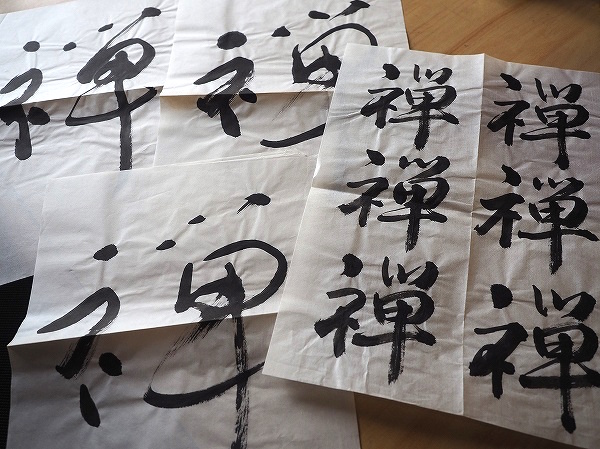 禅
禅
禅
禅 禅
禅 禅
禅 禅